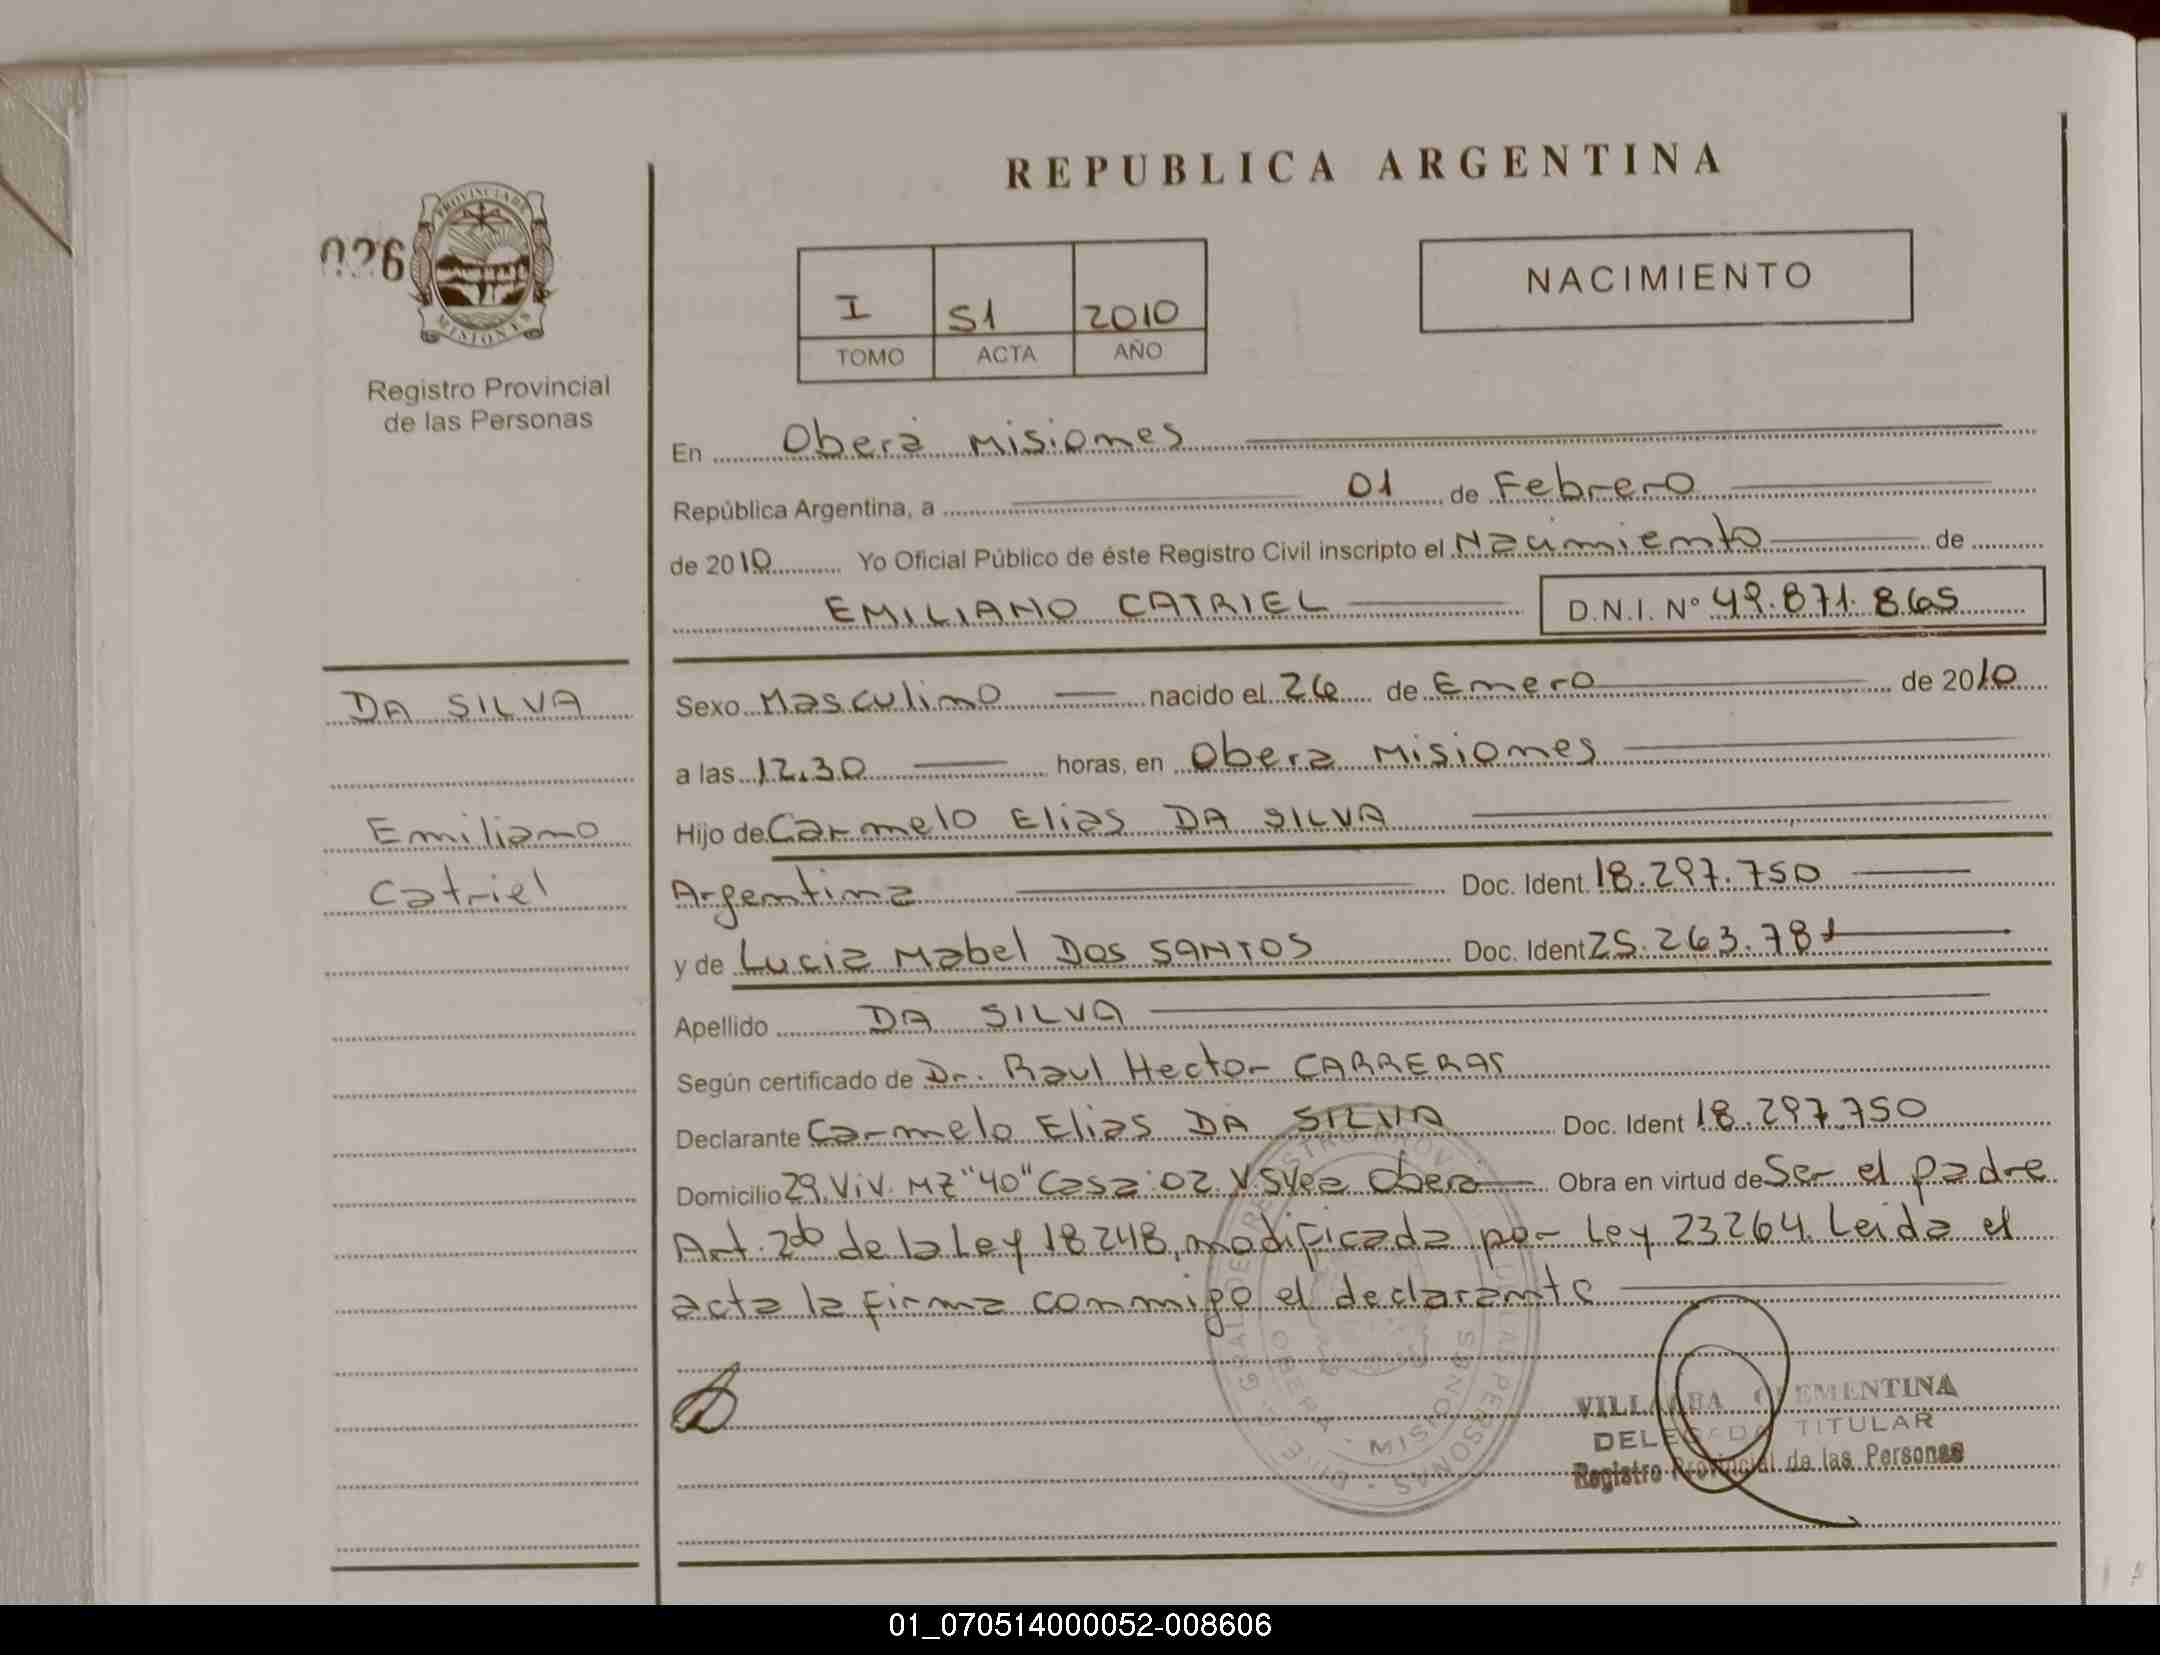 REPUBLICA ARGENTINA
026
PROVINCIA DE
MISIONES
Registro Provincial
de las Personas
I 51 2010
TOMO ACTA AÑO
NACIMIENTO
En Oberá Misiones
República Argentina, a 01 de Febrero
de 2010 Yo Oficial Público de éste Registro Civil inscripto el Nacimiento de
EMILIANO CATRIEL D.N.I. N° 49.871.865
DA SILVA
Emiliano
Catriel
Sexo Masculino nacido el 26 de Enero de 2010
a las 12.30 horas, en Obera Misiones
Hijo de Carmelo Elias DA SILVA
Argentina Doc. Ident. 18.297.750
y de Lucia Mabel DOS SANTOS Doc. Ident 25.263.781
Apellido DA SILVA
Según certificado de Dr. Raul Hector CARRERAS
Declarante Carmelo Elias DA SILVA Doc. Ident 18.297.750
Domicilio 29 Viv. MZ "40" Casa 02 Obera Obra en virtud de Ser el padre
Art. 2do de la Ley 18248, modificada por Ley 23264. Leida el
acta la firma conmigo el declarante
OBERA - MISIONES
VILLALBA CLEMENTINA
DELEGADA TITULAR
Registro Provincial de las Personas
01_070514000052-008606